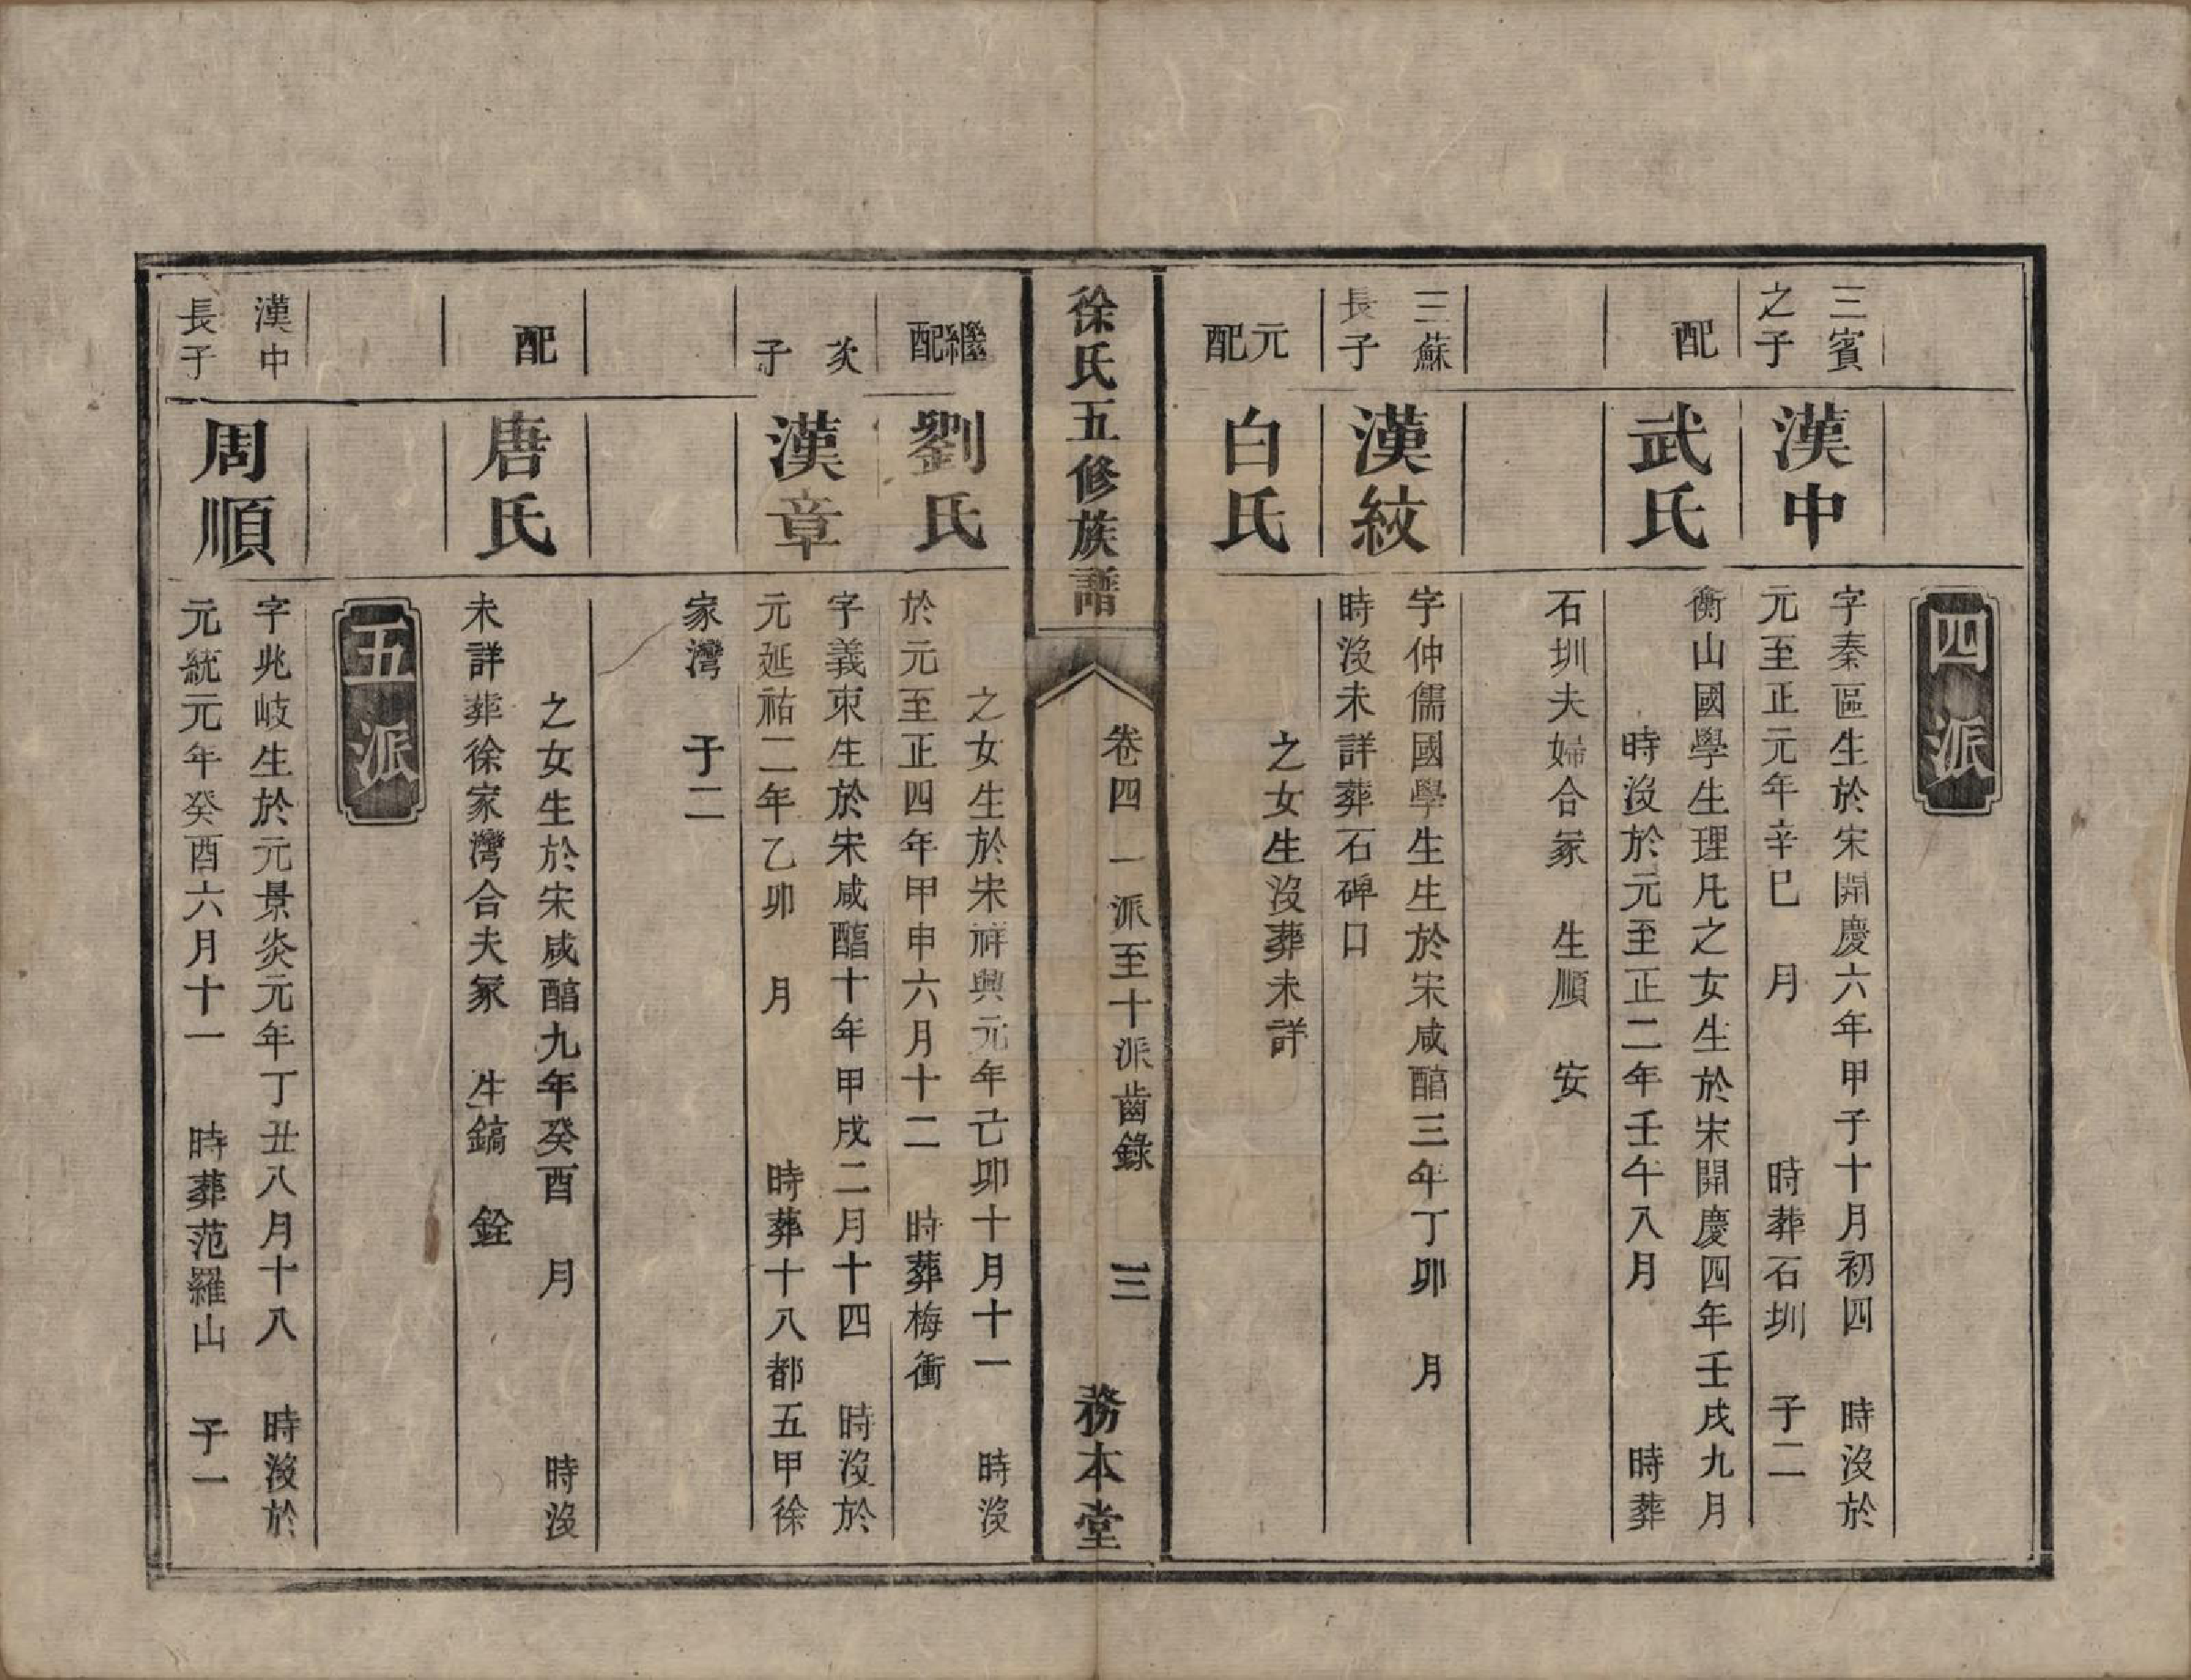 四派
三賓
之子
漢中
字秦區生於宋開慶六年甲子十月初四　時沒於
元至正元年辛巳　月　　時葬石圳　子二
配
武氏
衡山國學生理凡之女生於宋開慶四年壬戌九月
時沒於元至正二年壬午八月　　時葬
石圳夫婦合冢　生順　安
三蘇
長子
漢紋
字仲儒國學生生於宋咸酯三年丁卯　月
時沒未詳葬石碑口
元配
白氏
之女生沒葬未詳
徐氏五修族譜
卷四　一派至十派齒錄　三
務本堂
繼配
劉氏
之女生於宋祥興元年己卯十月十一　時沒
於元至正四年甲申六月十二　時葬梅衝
次
子
漢章
字義束生於宋咸酯十年甲戌二月十四　時沒於
元延祐二年乙卯　月　　時葬十八都五甲徐
家灣　子二
配
唐氏
之女生於宋咸酯九年癸酉　月　　時沒
未詳葬徐家灣合夫冢　生鎬　銓
五派
漢中
長子
周順
字兆岐生於元景炎元年丁丑八月十八　時沒於
元統元年癸酉六月十一　時葬范羅山　子一